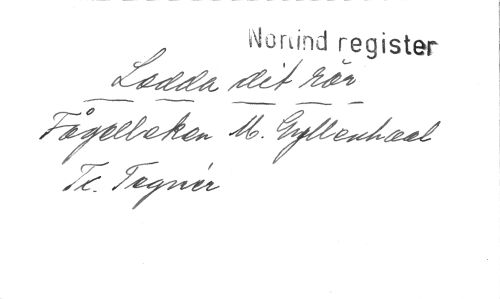 Norlind register
Ladda dit rör
Fågelleken M. Gyllenhaal
Tc. Tegnér